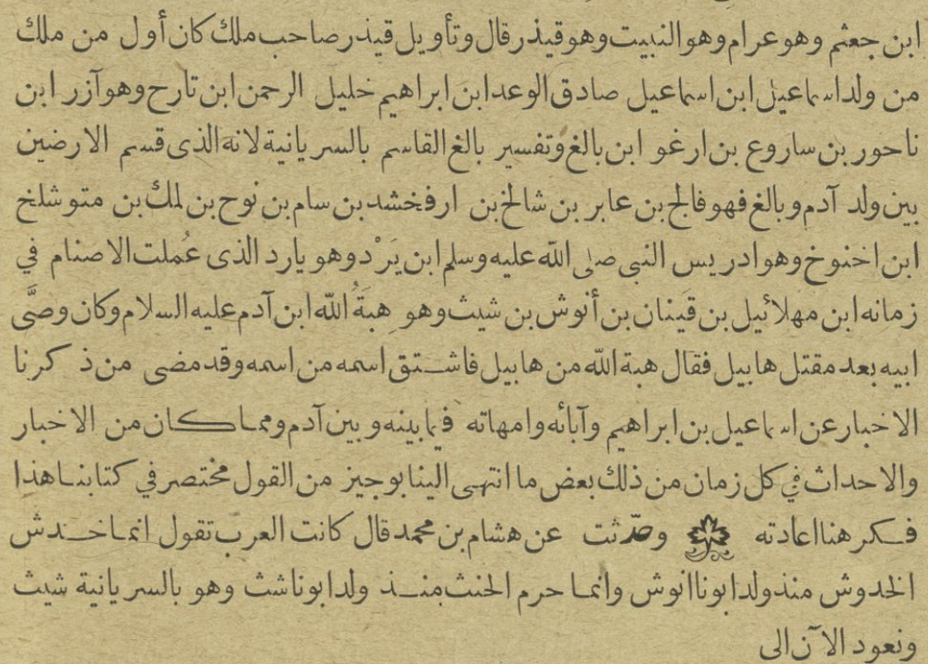 ابن جعثم وهو عرام وهو النبيت وهو قيذر قال وتأويل قيذر صاحب ملك كان أول من ملك
من ولد اسماعيل ابن اسماعيل صادق الوعد ابن ابراهيم خليل الرحمن ابن تارح وهو آزر ابن
ناحور بن ساروع بن ارغو ابن بالغ وتفسير بالغ القاسم بالسريانية لانه الذى قسم الارضين
بين ولد آدم وبالغ فهو فالج بن عابر بن شالخ بن ارفخشد بن سام بن نوح بن لمك بن متوشلخ
ابن اخنوخ وهو ادريس النبى صلى الله عليه وسلم ابن يَرْد وهو يارد الذى عُملت الاصنام في
زمانه ابن مهلائيل بن قَينان بن أنوش بن شيث وهو هبةُ الله ابن آدم عليه السلام وكان وصَّى
ابيه بعد مقتل هابيل فقال هبة الله من هابيل فاشتق اسمه من اسمه وقد مضى من ذكرنا
الاخبار عن اسماعيل بن ابراهيم وآبائه وامهاته فيما بينه وبين آدم ومما كان من الاخبار
والاحداث في كل زمان من ذلك بعض ما انتهى الينا بوجيز من القول مختصر في كتابنا هذا
فكرهنا اعادته وحدّثت عن هشام بن محمد قال كانت العرب تقول انما خدش
الخدوش منذ ولد ابونا انوش وانما حرم الحنث منذ ولد ابونا شث وهو بالسريانية شيث
ونعود الآن الى